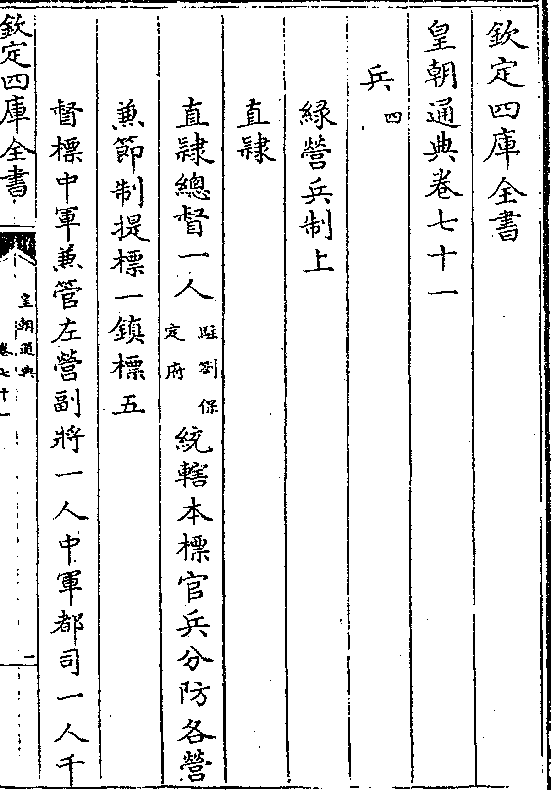 欽定四庫全書
皇朝通典卷七十一
兵四
綠營兵制上
直隸
直隸總督一人駐劄保定府統轄本標官兵分防各營
兼節制提標一鎮標五
督標中軍兼管左營副將一人中軍都司一人千
欽定四庫全書
皇朝通典
卷七十一
一